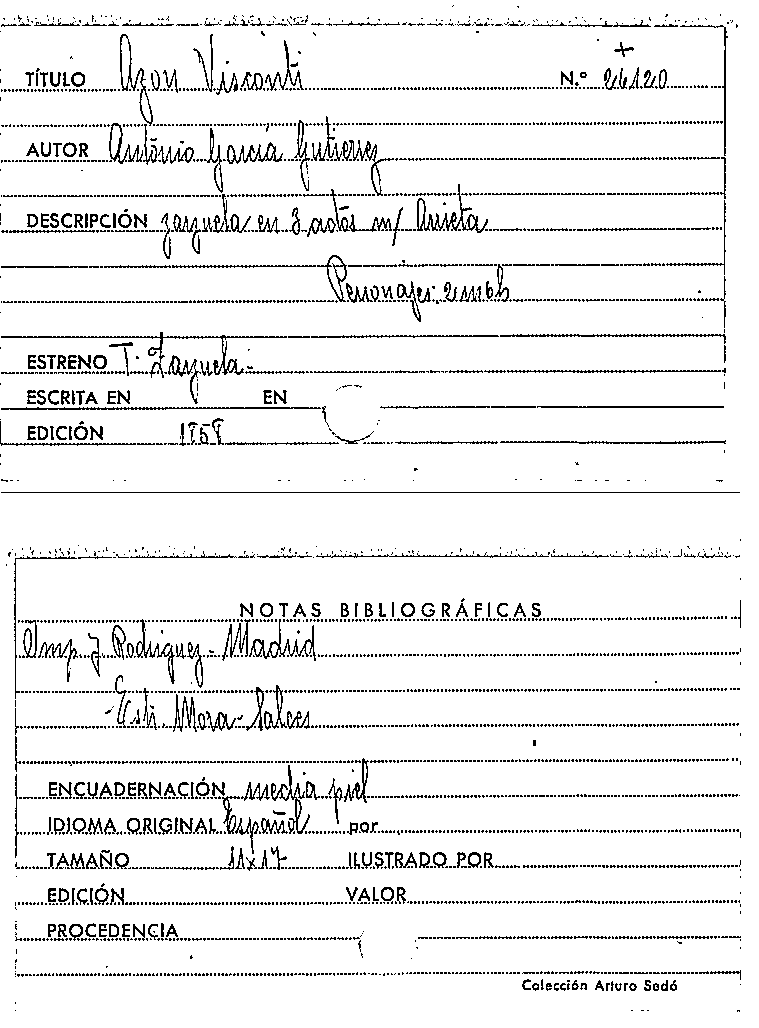 +
TÍTULO Azon Visconti N.º 26120
AUTOR António García Gutierrez
DESCRIPCIÓN zarzuela en 3 actos m/ Arrieta
Personajes: 2 m 6 h
ESTRENO T. Zarzuela.
ESCRITA EN EN
EDICIÓN 1858
NOTAS BIBLIOGRÁFICAS
Imp J Rodriguez - Madrid
- Mora - Salees
ENCUADERNACIÓN media piel
IDIOMA ORIGINAL Español por
TAMAÑO 11x17 ILUSTRADO POR
EDICIÓN VALOR
PROCEDENCIA
Colección Arturo Sedó